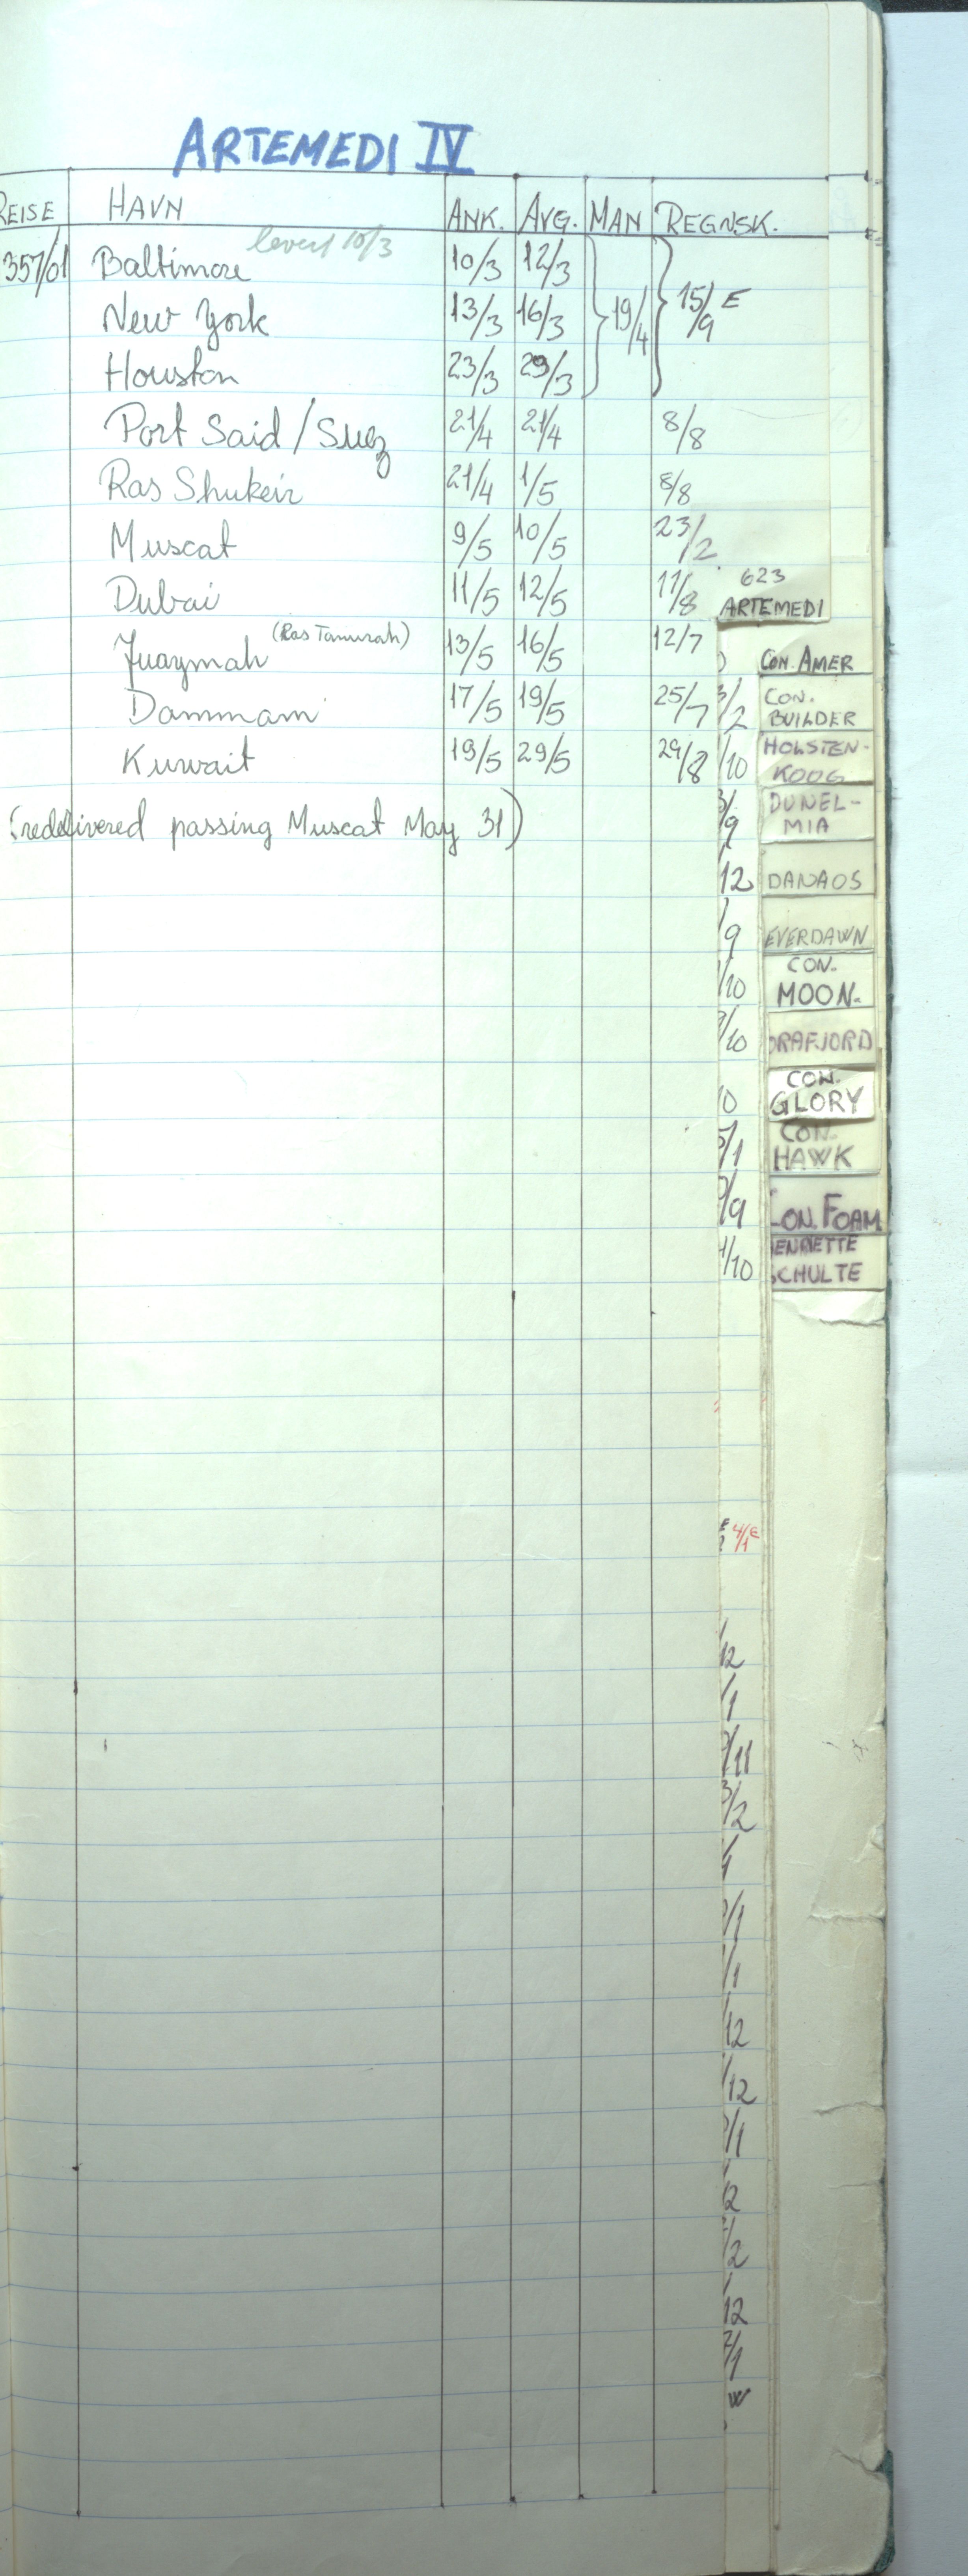 ARTEMEDI IV
REISE HAVN ANK. AVG. MAN REGNSK.
levert 10/3
357/01 Baltimore 10/3 12/3
New York 13/3 16/3 19/4 15/9 E
Houston 23/3 29/3
Port Said / Suez 21/4 21/4 8/8
Ras Shukeir 21/4 1/5 8/8
Muscat 9/5 10/5 23/2
Dubai 11/5 12/5 11/8
Juaymah (Ras Tanurah) 13/5 16/5 12/7
Dammam 17/5 19/5 25/7
Kuwait 19/5 29/5 29/8
(redelivered passing Muscat May 31)
623
ARTEMEDI
CON. AMER
CON.
BUILDER
HOLSTEN-
KOOG
DUNEL-
MIA
DANAOS
EVERDAWN
CON.
MOON.
ORAFJORD
CON.
GLORY
CON.
HAWK
CON. FOAM
HENRIETTE
SCHULTE
3/2
/10
3/9
12
/9
/10
/10
/1
/9
/10
4/1 E
12
/1
/11
3/2
/1
/1
12
/12
/1
/2
12
/1
W